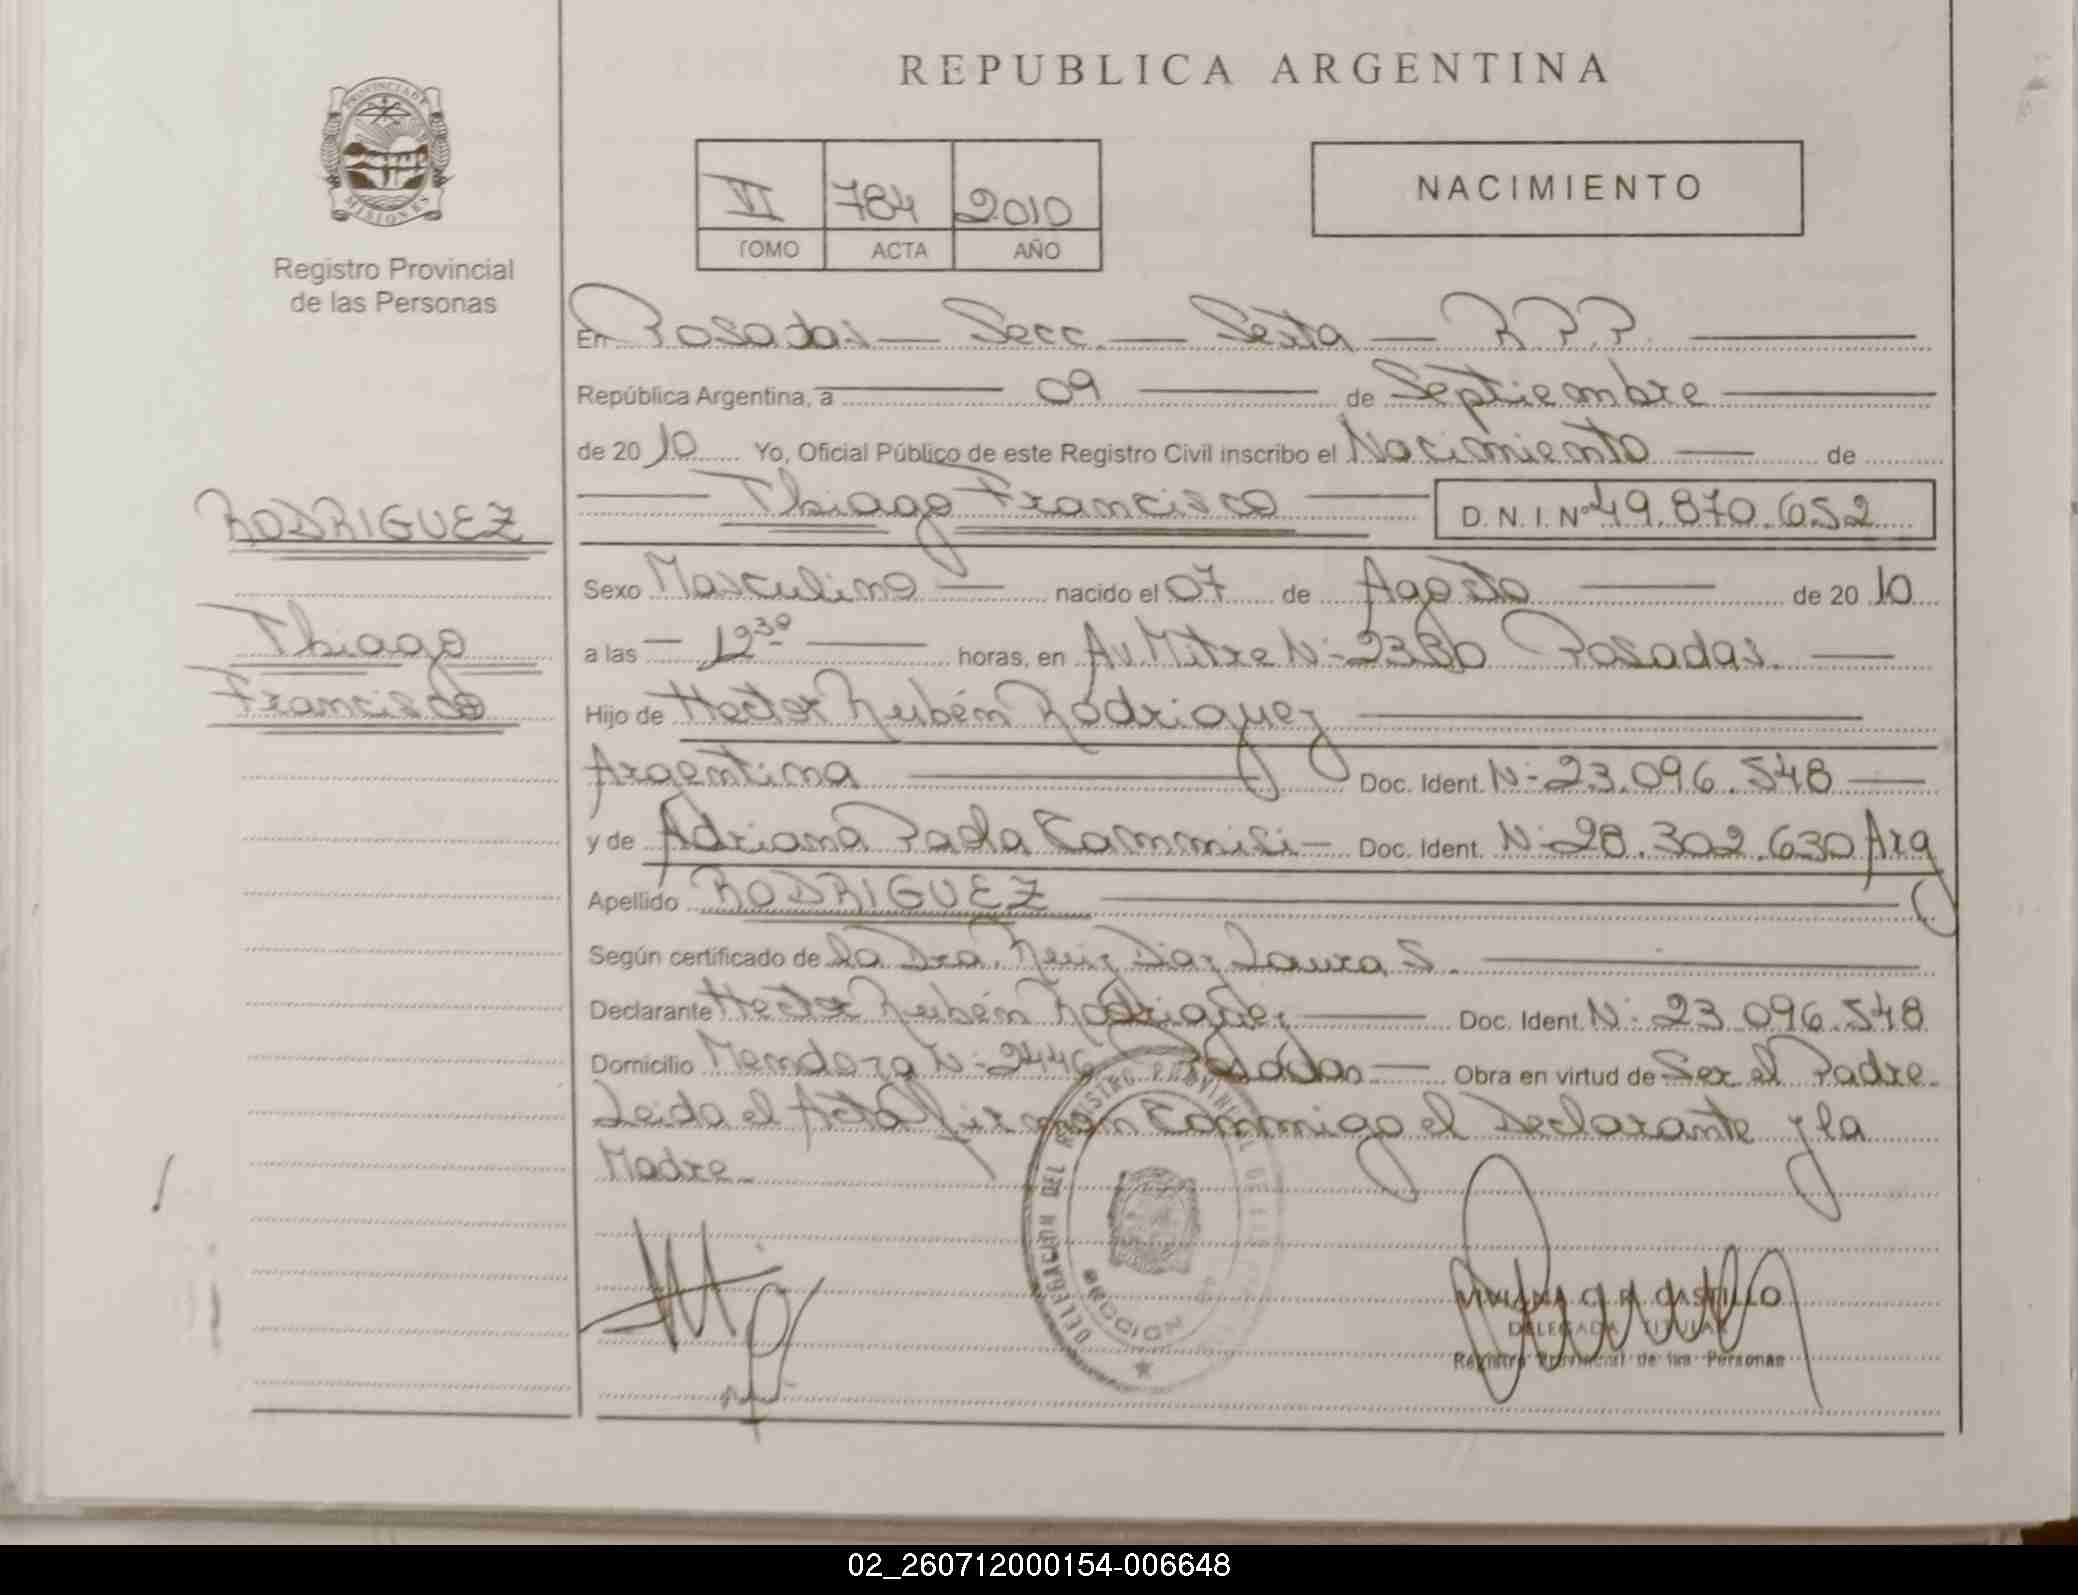 REPUBLICA ARGENTINA
PROVINCIA DE
MISIONES
Registro Provincial
de las Personas
VI 784 2010
TOMO ACTA AÑO
NACIMIENTO
En Posadas — Secc. — Sexta — R.P.P.
República Argentina, a 09 de Septiembre
de 2010 Yo, Oficial Público de este Registro Civil inscribo el Nacimiento — de
Thiago Francisco D. N. I. Nº 49.870.652
RODRIGUEZ
Sexo Masculino — nacido el 07 de Agosto de 2010
Thiago
a las — 12³⁰ — horas, en Av Mitre Nº 2380 Posadas. —
Francisco
Hijo de Hector Rubén Rodriguez
Argentina Doc. Ident. Nº 23.096.548 —
y de Adriana Paola — Doc. Ident. Nº 28.302.630 Arg
Apellido RODRIGUEZ
Según certificado de la Dra. Ruiz Diaz Laura S.
Declarante Hector Rubén Rodriguez — Doc. Ident. Nº 23.096.548
Domicilio Mendoza Nº 2446 Posadas — Obra en virtud de Ser el Padre.
Leida el Acta firman Conmigo el Declarante y la
Madre.
REGISTRO PROVINCIAL DE LAS
DELEGACION
SECCION
VIVIANA C. R. CASTILLO
DELEGADA TITULAR
Registro Provincial de las Personas
02_260712000154-006648